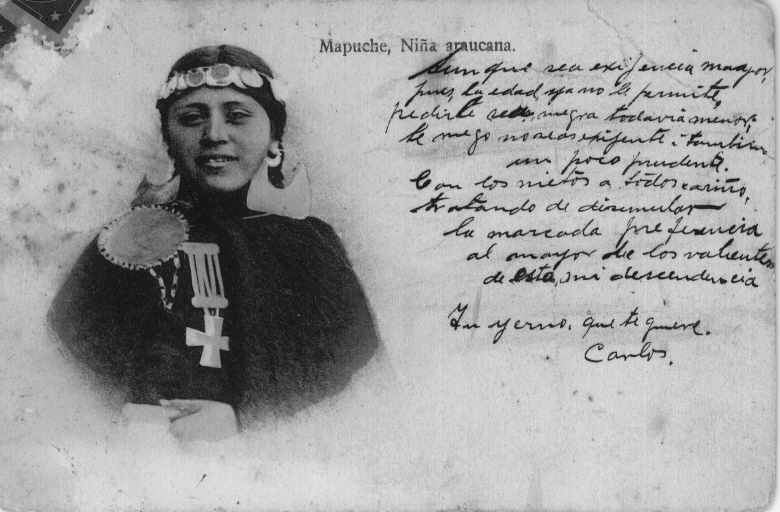 Mapuche, Niña araucana.
Aun que sea exijencia mayor,
pues, la edad, ya no le permite,
pedirle sea, suegra todavia menor,
te ruego no seas exijente i tambien
un poco prudente.
Con los nietos a todos cariño,
tratando de disimular
la marcada preferencia
al mayor de los valientes
de esta, mi descendencia
Tu yerno, que te quiere.
Carlos.